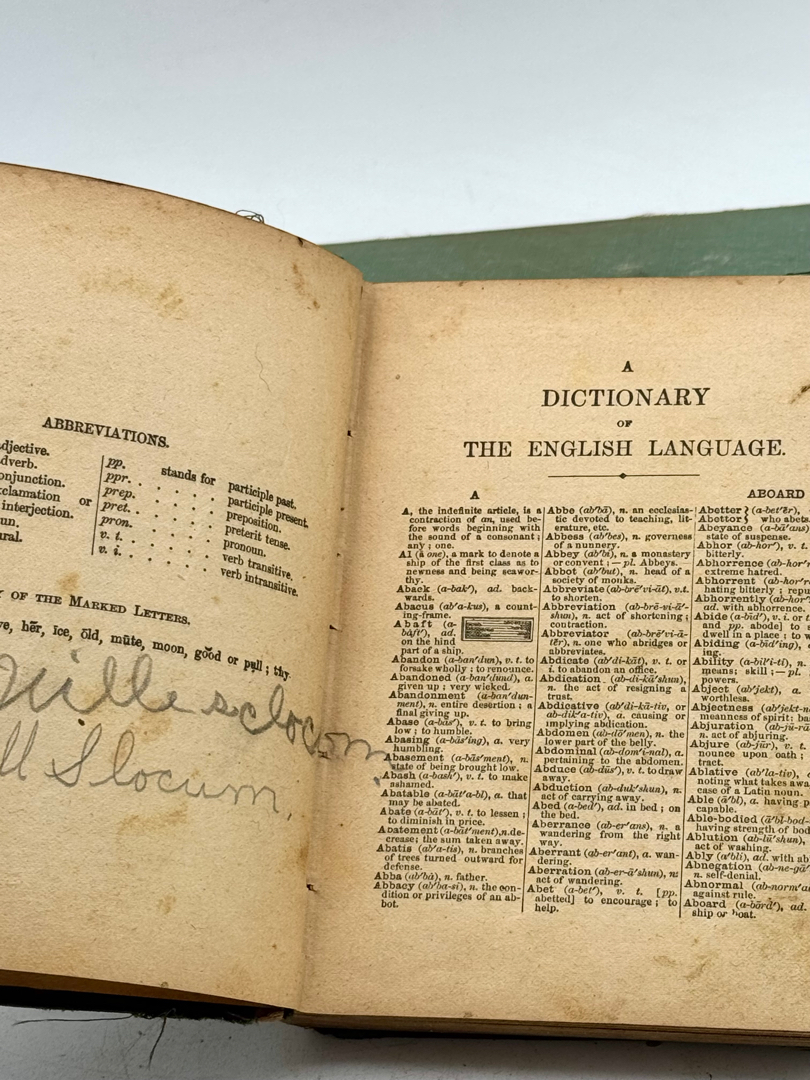 ABBREVIATIONS.
djective.
dverb.
onjunction.
xclamation or
interjection.
un.
ural.
pp. stands for participle past.
ppr. . . . . participle present.
prep. . . . . preposition.
pret. . . . . preterit tense.
pron. . . . . pronoun.
v. t. . . . . verb transitive.
v. i. . . . . verb intransitive.
Y OF THE MARKED LETTERS.
ve, hẽr, īce, ōld, mūte, moon, go͝od or pu̇ll; thy.
Slocum
A
DICTIONARY
OF
THE ENGLISH LANGUAGE.
A
A, the indefinite article, is a
contraction of an, used be-
fore words beginning with
the sound of a consonant;
any; one.
A1 (ā one), a mark to denote a
ship of the first class as to
newness and being seawor-
thy.
Aback (a-bak'), ad. back-
wards.
Abacus (ab'a-kus), a count-
ing-frame.
Abaft (a-
bȧft'), ad.
on the hind
part of a ship.
Abandon (a-ban'dun), v. t. to
forsake wholly: to renounce.
Abandoned (a-ban'dund), a.
given up; very wicked.
Abandonment (a-ban'dun-
ment), n. entire desertion; a
final giving up.
Abase (a-bās'), v. t. to bring
low; to humble.
Abasing (a-bās'ing), a. very
humbling.
Abasement (a-bās'ment), n.
state of being brought low.
Abash (a-bash'), v. t. to make
ashamed.
Abatable (a-bāt'a-bl), a. that
may be abated.
Abate (a-bāt'), v. t. to lessen;
to diminish in price.
Abatement (a-bāt'ment), n. de-
crease; the sum taken away.
Abatis (ab'a-tis), n. branches
of trees turned outward for
defense.
Abba (ab'bà), n. father.
Abbacy (ab'ba-si), n. the con-
dition or privileges of an ab-
bot.
Abbe (ab'bā), n. an ecclesias-
tic devoted to teaching, lit-
erature, etc.
Abbess (ab'bes), n. governess
of a nunnery.
Abbey (ab'bi), n. a monastery
or convent;—pl. Abbeys.
Abbot (ab'but), n. head of a
society of monks.
Abbreviate (ab-brē'vi-āt), v.t.
to shorten.
Abbreviation (ab-brē-vi-ā'-
shun), n. act of shortening;
contraction.
Abbreviator (ab-brē'vi-ā-
tẽr), n. one who abridges or
abbreviates.
Abdicate (ab'di-kāt), v. t. or
i. to abandon an office.
Abdication (ab-di-kā'shun),
n. the act of resigning a
trust.
Abdicative (ab'di-kā-tiv, or
ab-dik'a-tiv), a. causing or
implying abdication.
Abdomen (ab-dō'men), n. the
lower part of the belly.
Abdominal (ab-dom'i-nal), a.
pertaining to the abdomen.
Abduce (ab-dūs'), v. t. to draw
away.
Abduction (ab-duk'shun), n.
act of carrying away.
Abed (a-bed'), ad. in bed; on
the bed.
Aberrance (ab-er'ans), n. a
wandering from the right
way.
Aberrant (ab-er'ant), a. wan-
dering.
Aberration (ab-er-ā'shun), n.
act of wandering.
Abet (a-bet'), v. t. [pp.
abetted] to encourage; to
help.
ABOARD
Abetter } (a-bet'ẽr),
Abettor } who abets.
Abeyance (a-bā'ans)
state of suspense.
Abhor (ab-hor'), v. t.
bitterly.
Abhorrence (ab-hor'r
extreme hatred.
Abhorrent (ab-hor're
hating bitterly; repu
Abhorrently (ab-hor'r
ad. with abhorrence.
Abide (a-bīd'), v. i. or t
and pp. abode] to s
dwell in a place; to w
Abiding (a-bīd'ing),
ing.
Ability (a-bil'i-ti), n.
means; skill;—pl.
powers.
Abject (ab'jekt), a.
worthless.
Abjectness (ab'jekt-n
meanness of spirit: ba
Abjuration (ab-jū-rā
n. act of abjuring.
Abjure (ab-jūr'), v. t.
nounce upon oath;
tract.
Ablative (ab'la-tiv),
noting what takes awa
case of a Latin noun.
Able (ā'bl), a. having p
capable.
Able-bodied (ā'bl-bod-
having strength of bod
Ablution (ab-lū'shun),
act of washing.
Ably (a'bli), ad. with ab
Abnegation (ab-ne-gā'
n. self-denial.
Abnormal (ab-norm'a
against rule.
Aboard (a-bōrd'), ad.
ship or boat.